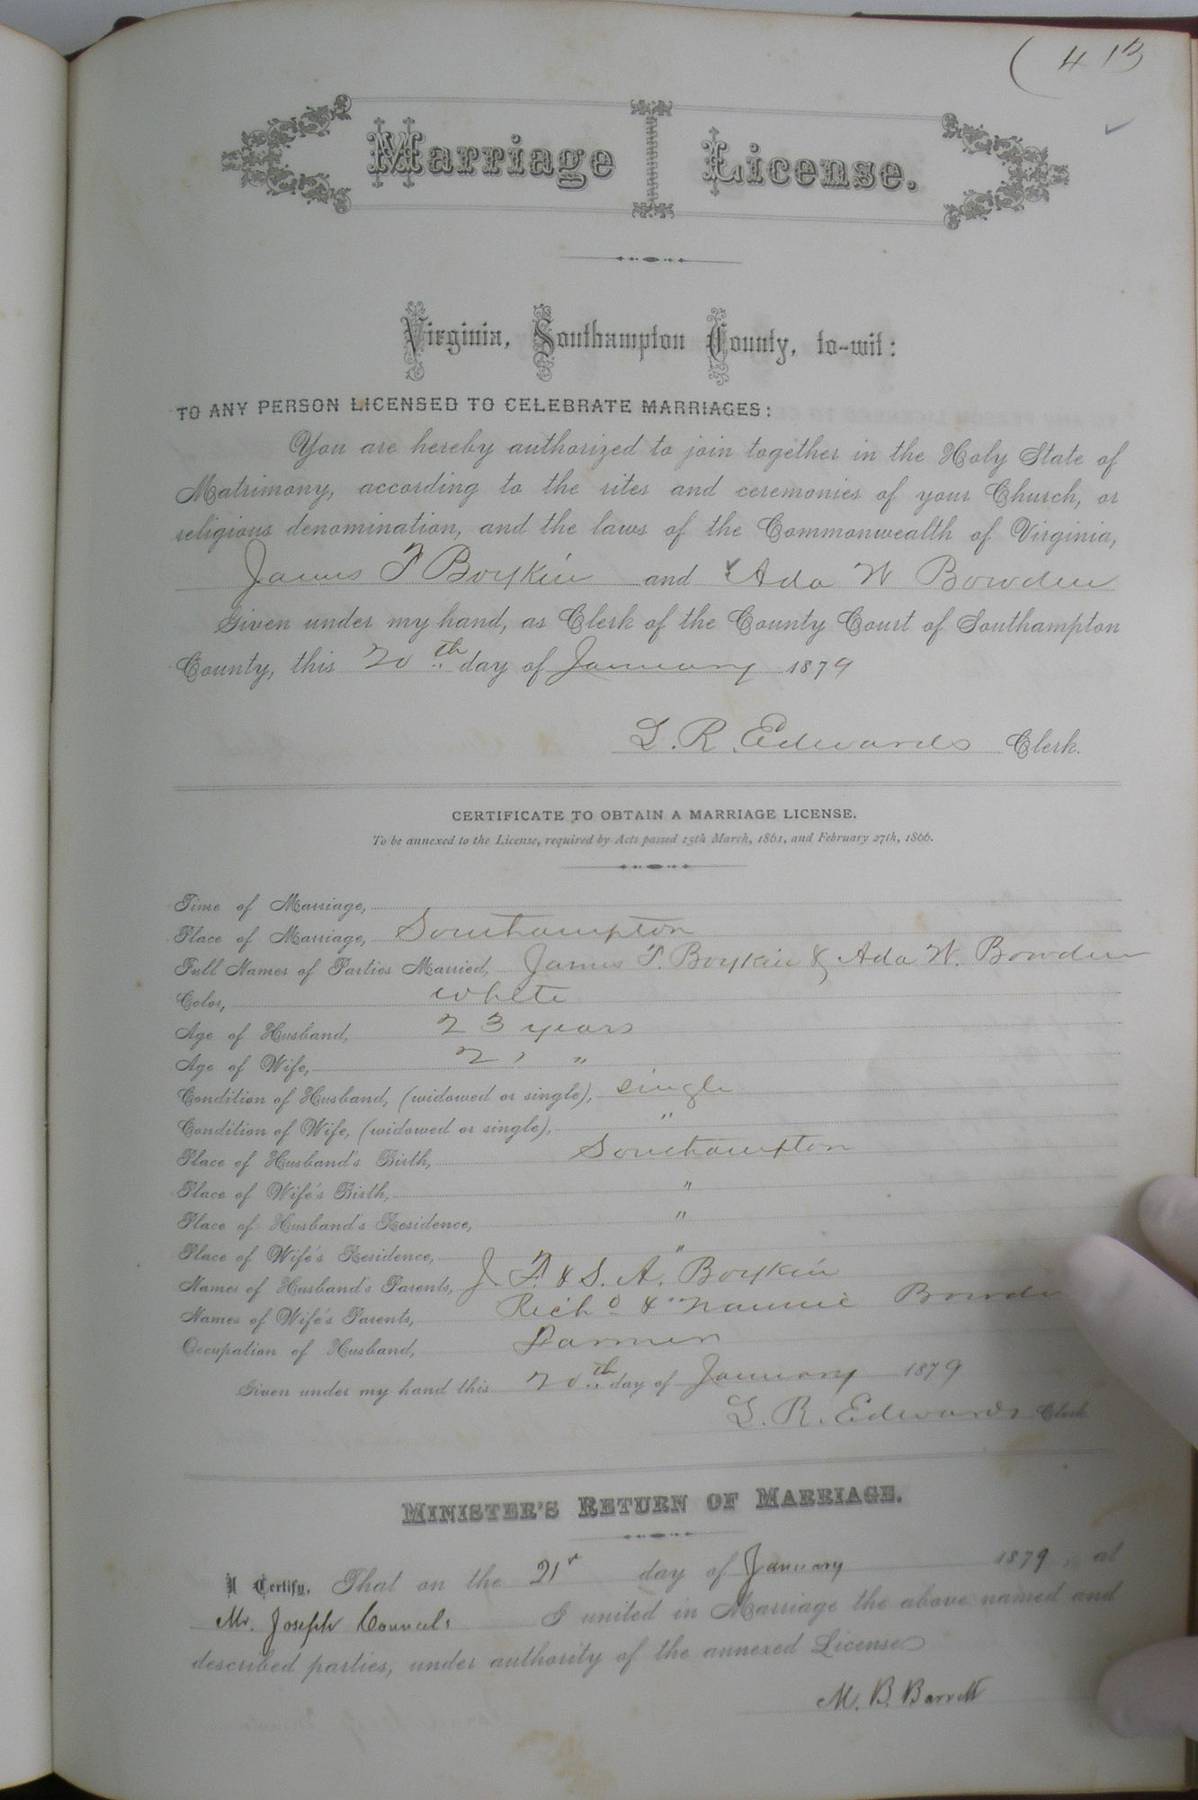 (413
Marriage License.
Virginia, Southampton County, to-wit:
TO ANY PERSON LICENSED TO CELEBRATE MARRIAGES:
You are hereby authorized to join together in the Holy State of
Matrimony, according to the rites and ceremonies of your Church, or
religious denomination, and the laws of the Commonwealth of Virginia,
James F Boykin and Ada W Bowden
Given under my hand, as Clerk of the County Court of Southampton
County, this 20th day of January 1879
L. R. Edwards Clerk.
CERTIFICATE TO OBTAIN A MARRIAGE LICENSE.
To be annexed to the License, required by Acts passed 15th March, 1861, and February 27th, 1866.
Time of Marriage,
Place of Marriage, Southampton
Full Names of Parties Married, James F. Boykin & Ada W. Bowden
Color, white
Age of Husband, 23 years
Age of Wife, "
Condition of Husband, (widowed or single), single
Condition of Wife, (widowed or single), "
Place of Husband's Birth, Southampton
Place of Wife's Birth, "
Place of Husband's Residence, "
Place of Wife's Residence, "
Names of Husband's Parents, J. F. & S. A. Boykin
Names of Wife's Parents, Richd & Nannie Bowden
Occupation of Husband, Farmer
Given under my hand this 20th day of January 1879
L. R. Edwards Clerk
MINISTER'S RETURN OF MARRIAGE.
I Certify, That on the 21st day of January 1879, at
Mr. Joseph Councils I united in Marriage the above named and
described parties, under authority of the annexed License
M. B. Barrett